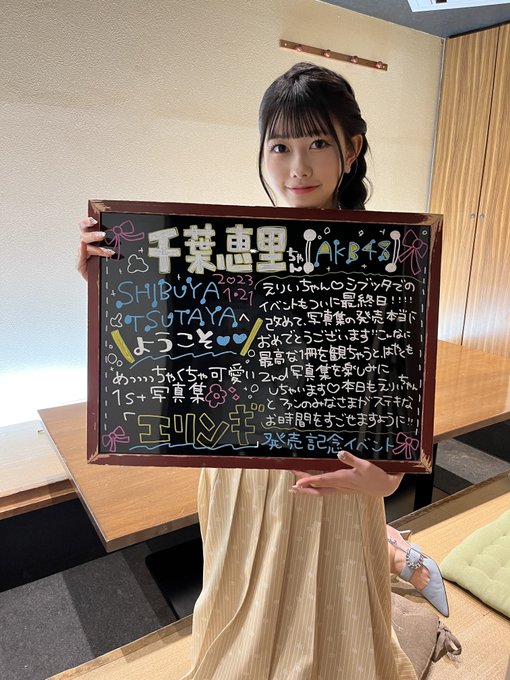 千葉恵里ちゃん【AKB48】
SHIBUYA 2023
1.21
TSUTAYAへ
ようこそ♡♡
めっっっっちゃくちゃ可愛い
1st写真集
「エリンギ」
えりいちゃん♡シブツタでの
イベントもついに最終日!!!!
改めて、写真集の発売本当に
おめでとうございます"こんなに
最高な1冊を観ちゃうと、はたもも
2nd写真集を楽しみに
しちゃいます♡本日もえりいちゃん
とファンのみなさまがステキな
お時間をすごせますように!!
発売記念イベント